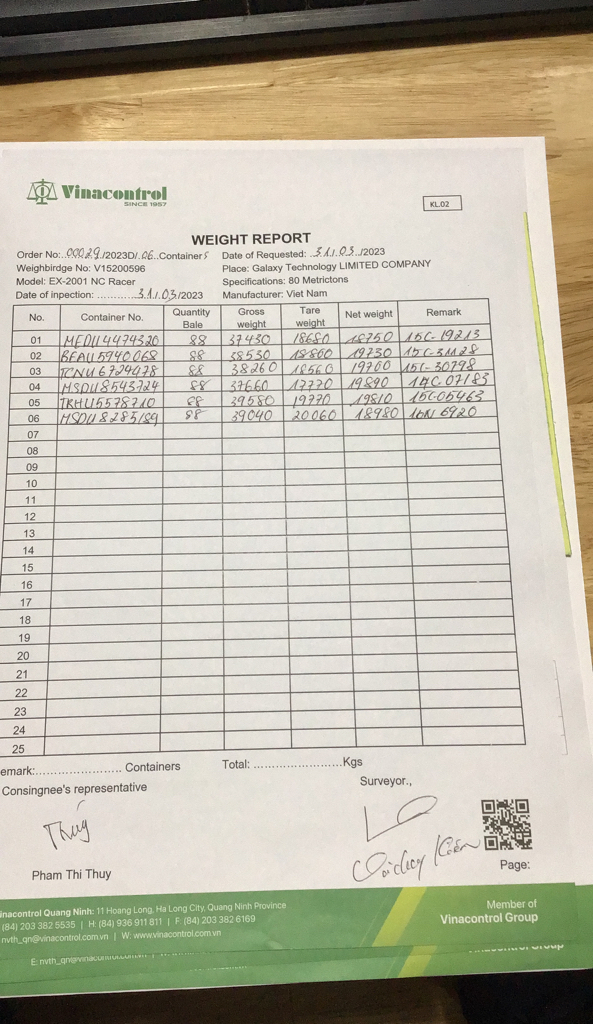 Vinacontrol
SINCE 1957
KL.02
WEIGHT REPORT
Order No:..00029./2023D/.06..Containers Date of Requested: .31/.03./2023
Weighbirdge No: V15200596 Place: Galaxy Technology LIMITED COMPANY
Model: EX-2001 NC Racer Specifications: 80 Metrictons
Date of inpection: ............31/.03/2023 Manufacturer: Viet Nam
No. Container No. Quantity Bale Gross weight Tare weight Net weight Remark
01 MEDU4474320 88 37430 18680 18750 15C-19213
02 BEAU5940068 88 38530 18800 19730 15C-31128
03 TCNU6729478 88 38260 18560 19700 15C-30798
04 MSDU8543724 88 37660 17770 19890 14C 07183
05 TRHU5578710 88 39580 19770 19810 15C-05463
06 MSDU8285189 88 39040 20060 18980 16N 6920
07
08
09
10
11
12
13
14
15
16
17
18
19
20
21
22
23
24
25
emark:........................ Containers Total: .........................Kgs
Consingnee's representative Surveyor.,
Thuy
Pham Thi Thuy Page:
inacontrol Quang Ninh: 11 Hoang Long, Ha Long City, Quang Ninh Province
(84) 203 382 5535 | H: (84) 936 911 811 | F. (84) 203 382 6169
nvth_qn@vinacontrol.com.vn | W: www.vinacontrol.com.vn
Member of
Vinacontrol Group
E: nvth_qn@vinacontrol.com.vn
Vinacontrol Group